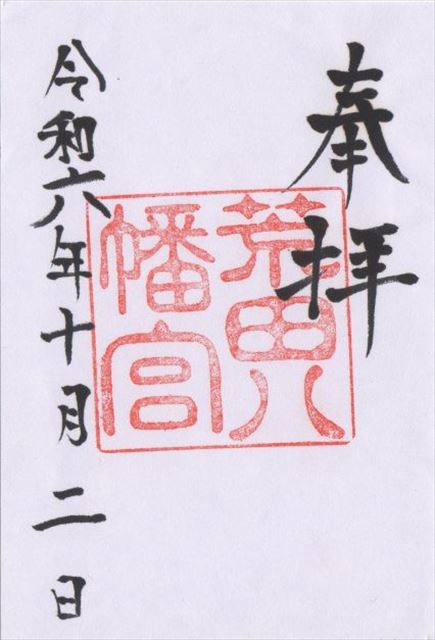 奉拝
荒田八
幡宮
令和六年十月二日